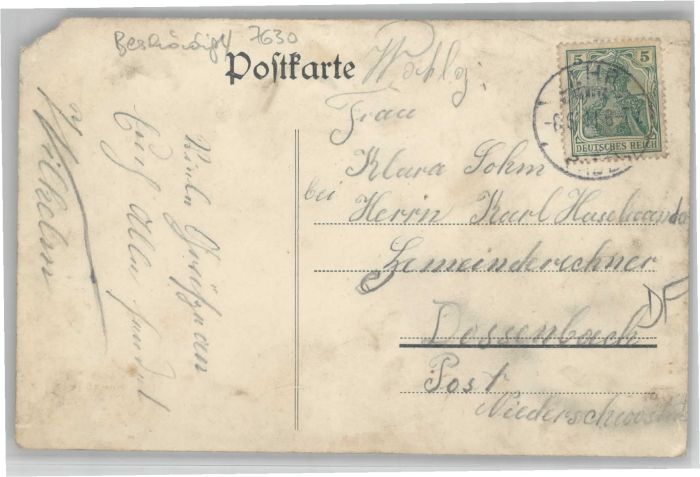 7630
Postkarte
Wohlg:
Frau
Klara Sohm
bei
Herrn Karl Haselwander
Gemeinderechner
Dossenbach
Post
Niederschwörstadt
DF
Viele Grüße
Wilhelm
5 5
DEUTSCHES REICH
LAHR